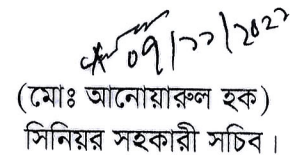 ০৭/১১/২০২২
(মোঃ আনোয়ারুল হক)
সিনিয়র সহকারী সচিব।